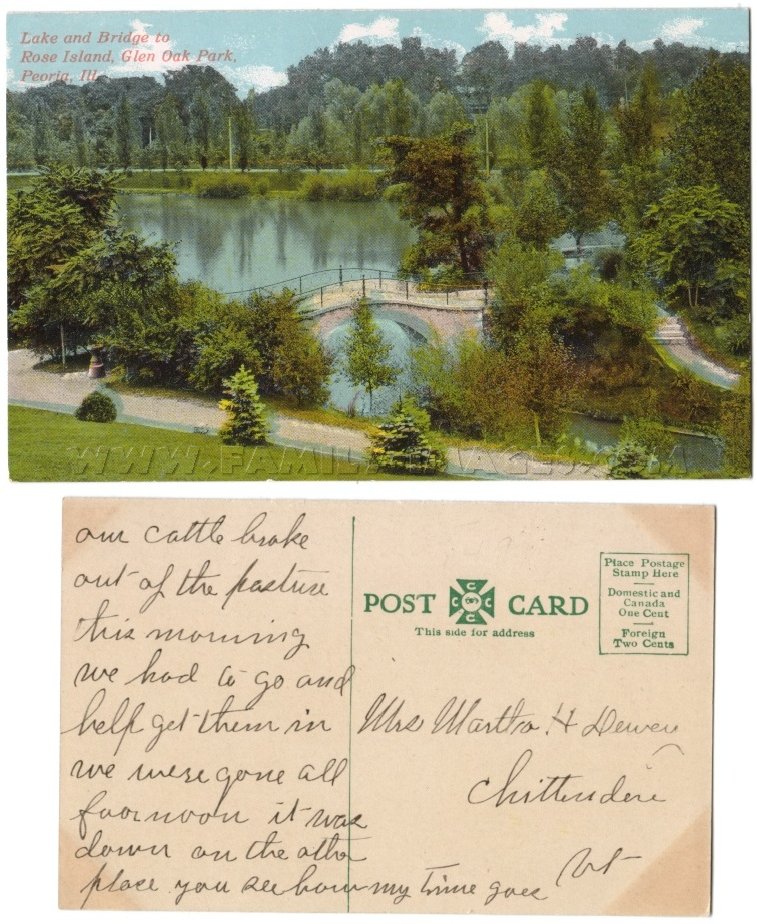 Lake and Bridge to
Rose Island, Glen Oak Park,
Peoria, Ill.
WWW.FAMILYIMAGES.COM
our cattle brake
out of the pasture
this morning
we had to go and
help get them in
we were gone all
foornoon it was
down on the other
place you see how my time goes
POST CARD
C C C C
This side for address
Place Postage
Stamp Here
Domestic and
Canada
One Cent
Foreign
Two Cents
Mrs Martha H Dewey
Chittenden
Vt